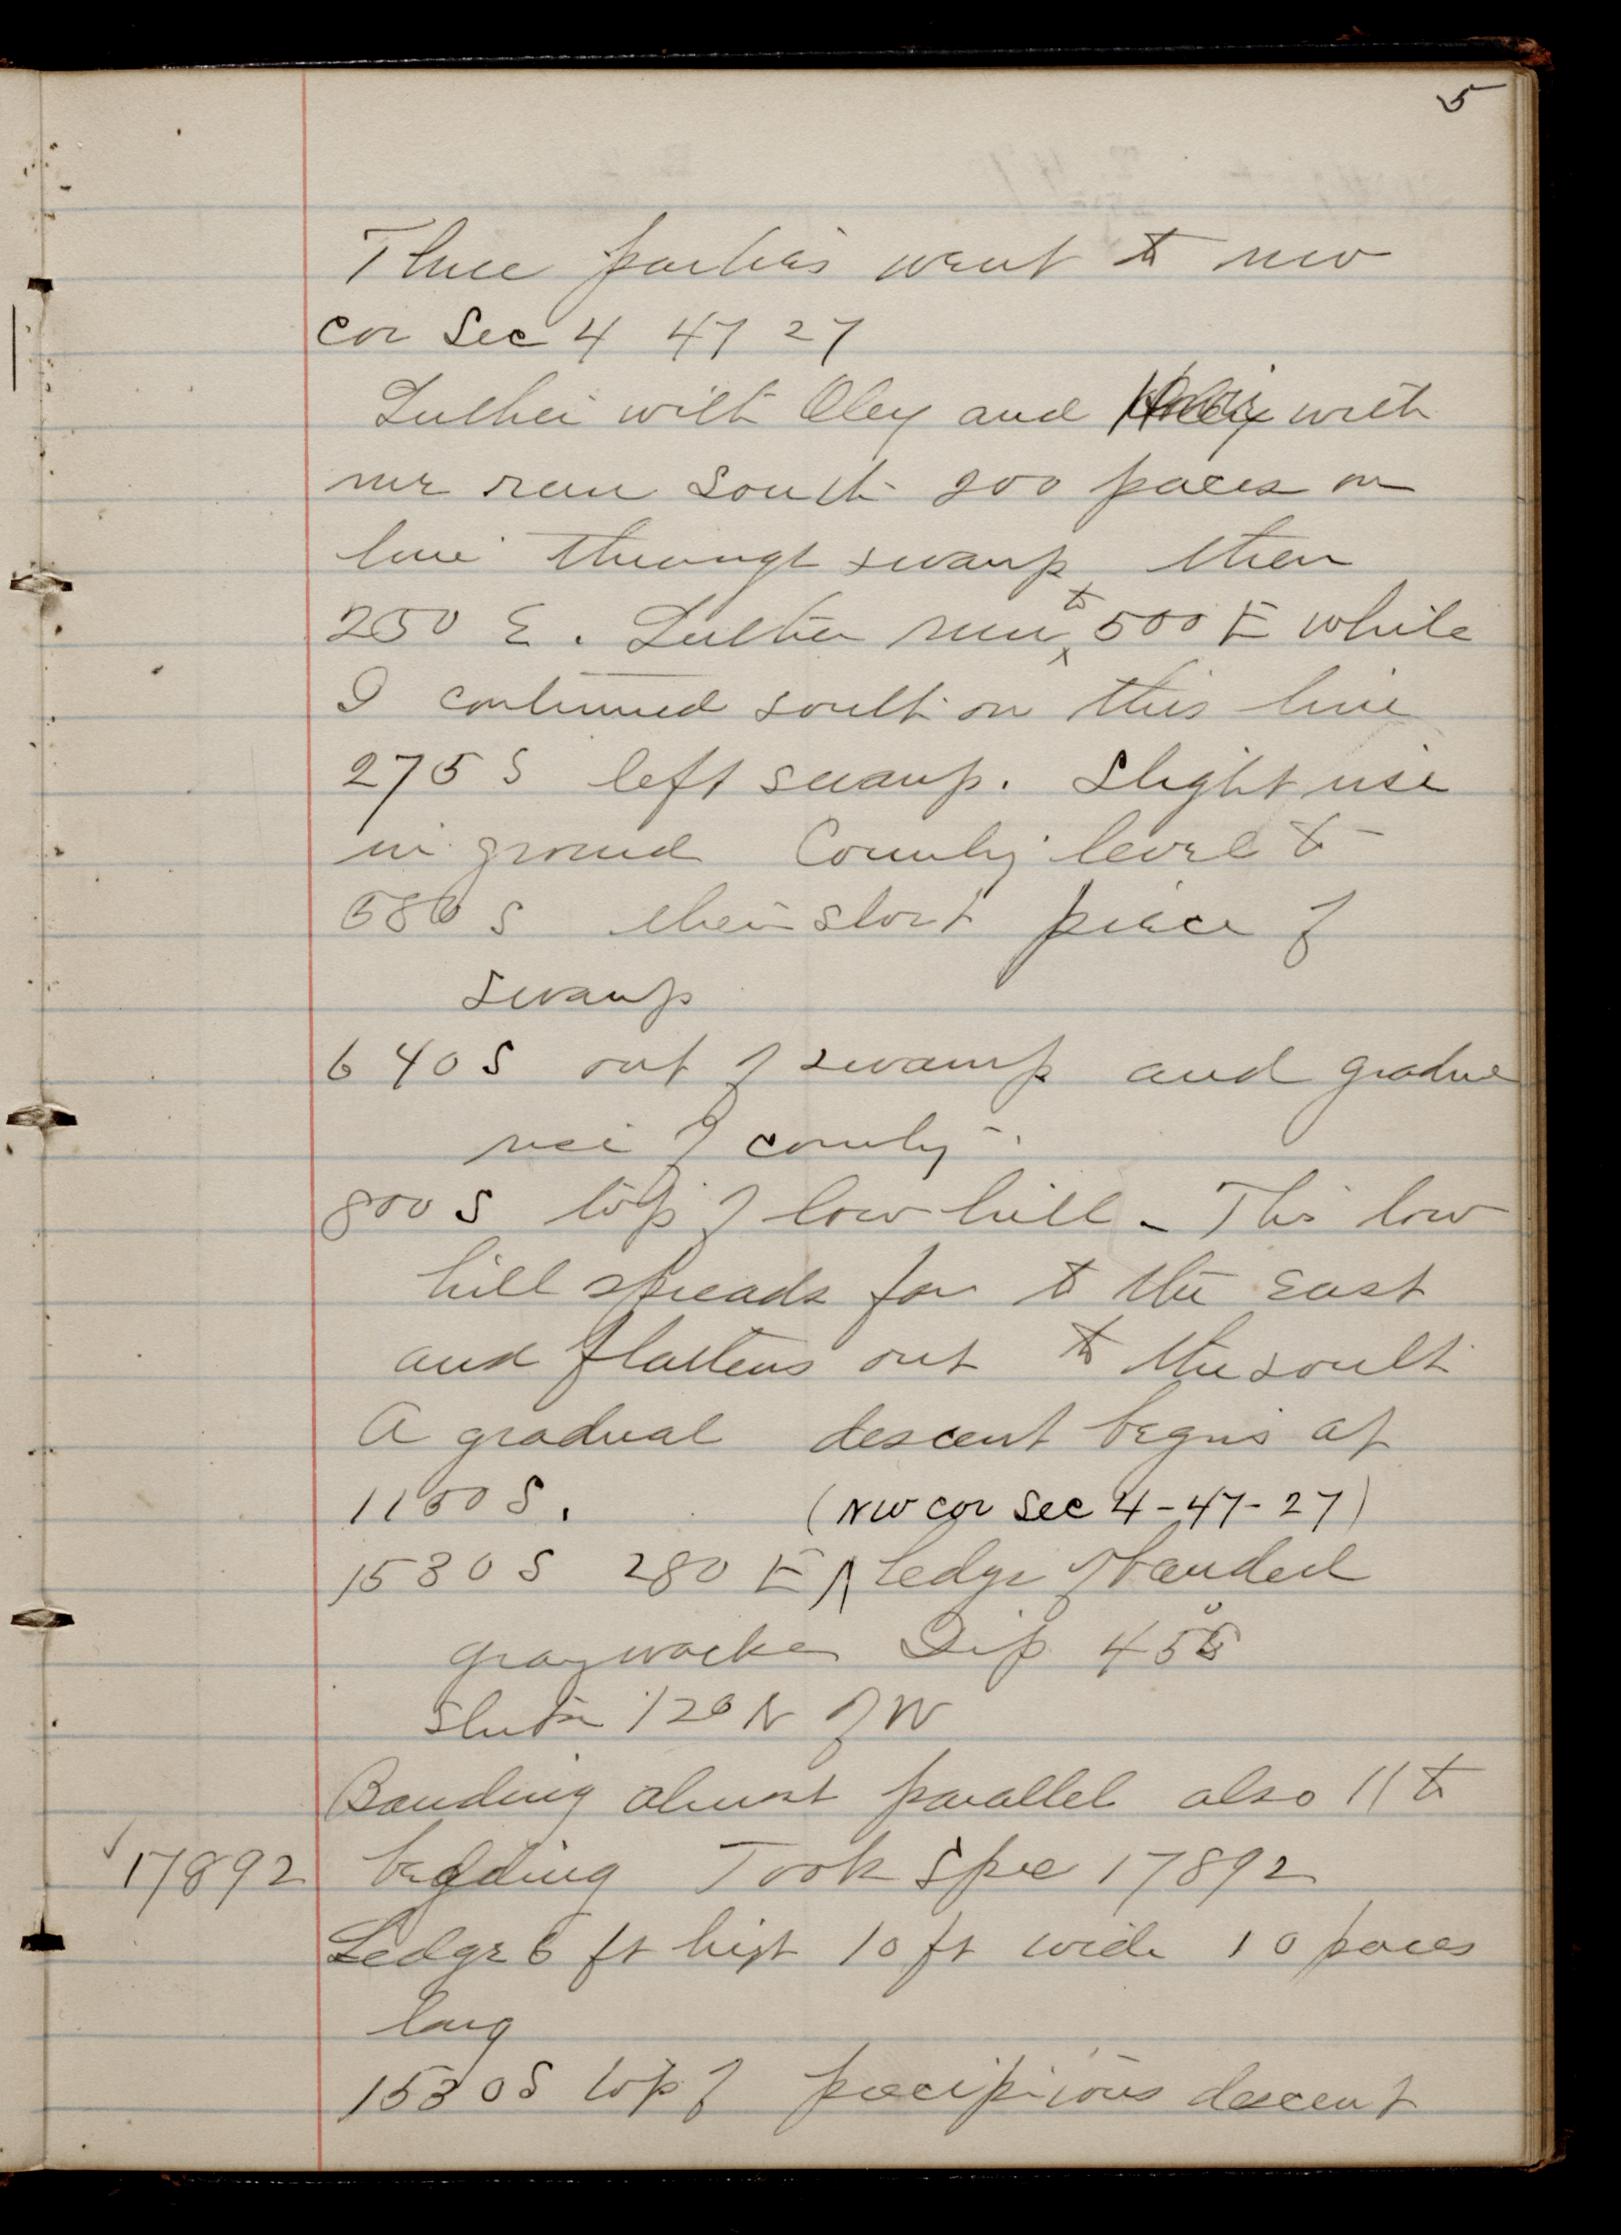 5
Three parties went to nw
cor Sec 4 47 27
Luther with Oley and with
me run South 200 paces on
line through swamp then
250 E. Luther run to 500 E while
I continued south on this line
275 S left swamp. Slight rise
in ground Country level to
580 S then short piece of
swamp
640 S out of swamp and gradual
rise of country.
800 S top of low hill - This low
hill spreads far to the East
and flattens out to the south
A gradual descent begins at
1150 S.
(NW cor Sec 4-47-27)
1530 S 280 E ^ Ledge of banded
graywacke Dip
Strike 12° N of W
Banding almost parallel also || to
17892 bedding Took Spec 17892
Ledge 6 ft high 10 ft wide 10 paces
long
1530 S top of precipitous descent